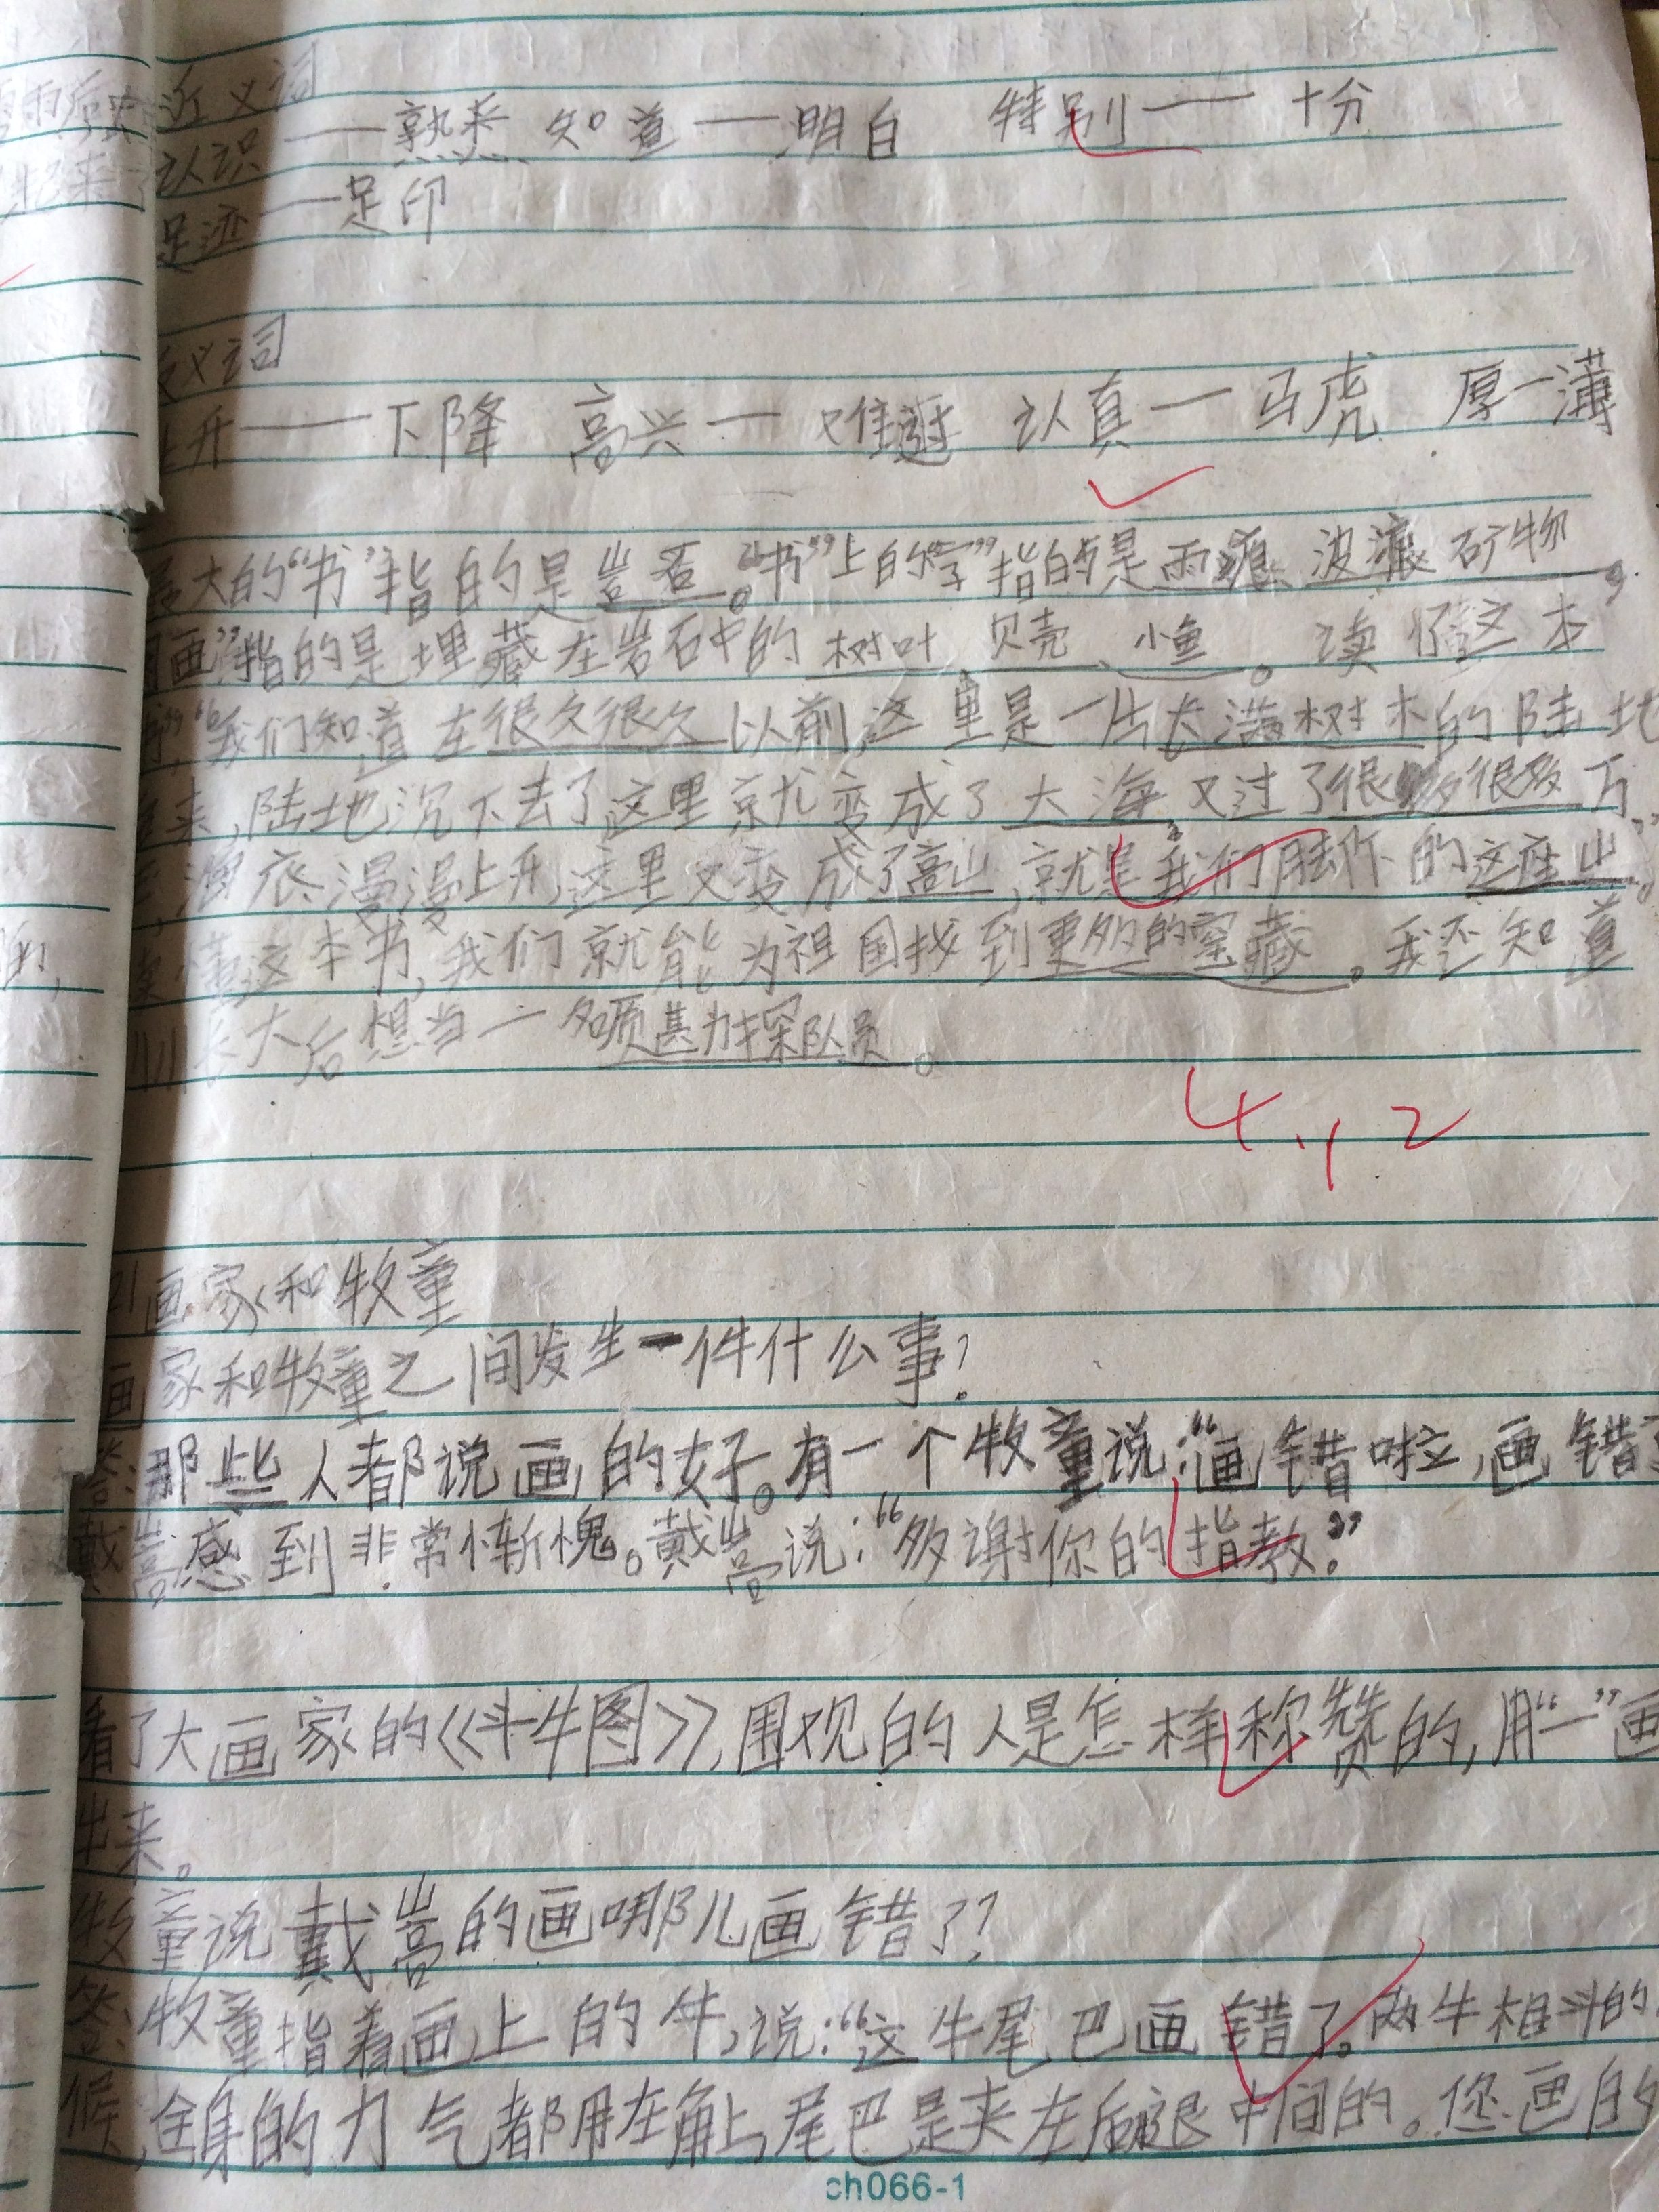 近义词
认识——熟悉 知道——明白 特别——十分
足迹——足印
反义词
上升——下降 高兴——难过 认真——马虎 厚—薄
大的“书”指的是岩石。“书”上的“字”指的是雨痕、波浪、矿物,
画”指的是埋藏在岩石中的树叶、贝壳、小鱼。读懂这本
“我们知道在很久很久以前,这里是一片长满树木的陆地
来,陆地沉下去了这里就变成了大海,又过了很多很多万
,海底漫漫上升,这里又变成了高山,就是我们脚下的这座山”。
读懂这本书,我们就能为祖国找到更多的宝藏。我还知道
川川长大后想当一名质勘探队员。
4.12
21画家和牧童
画家和牧童之间发生一件什么事?
答:那些人都说画的好。有一个牧童说:“画错啦,画错
戴嵩感到非常惭愧。戴嵩说:“多谢你的指教。”
看了大画家的《斗牛图》,围观的人是怎样称赞的,用“一”画
出来。
牧童说戴嵩的画哪儿画错了?
答:牧童指着画上的牛,说:“这牛尾巴画错了。两牛相斗的
候,全身的力气都用在角上,尾巴是夹在后腿中间的。您画的
ch066-1